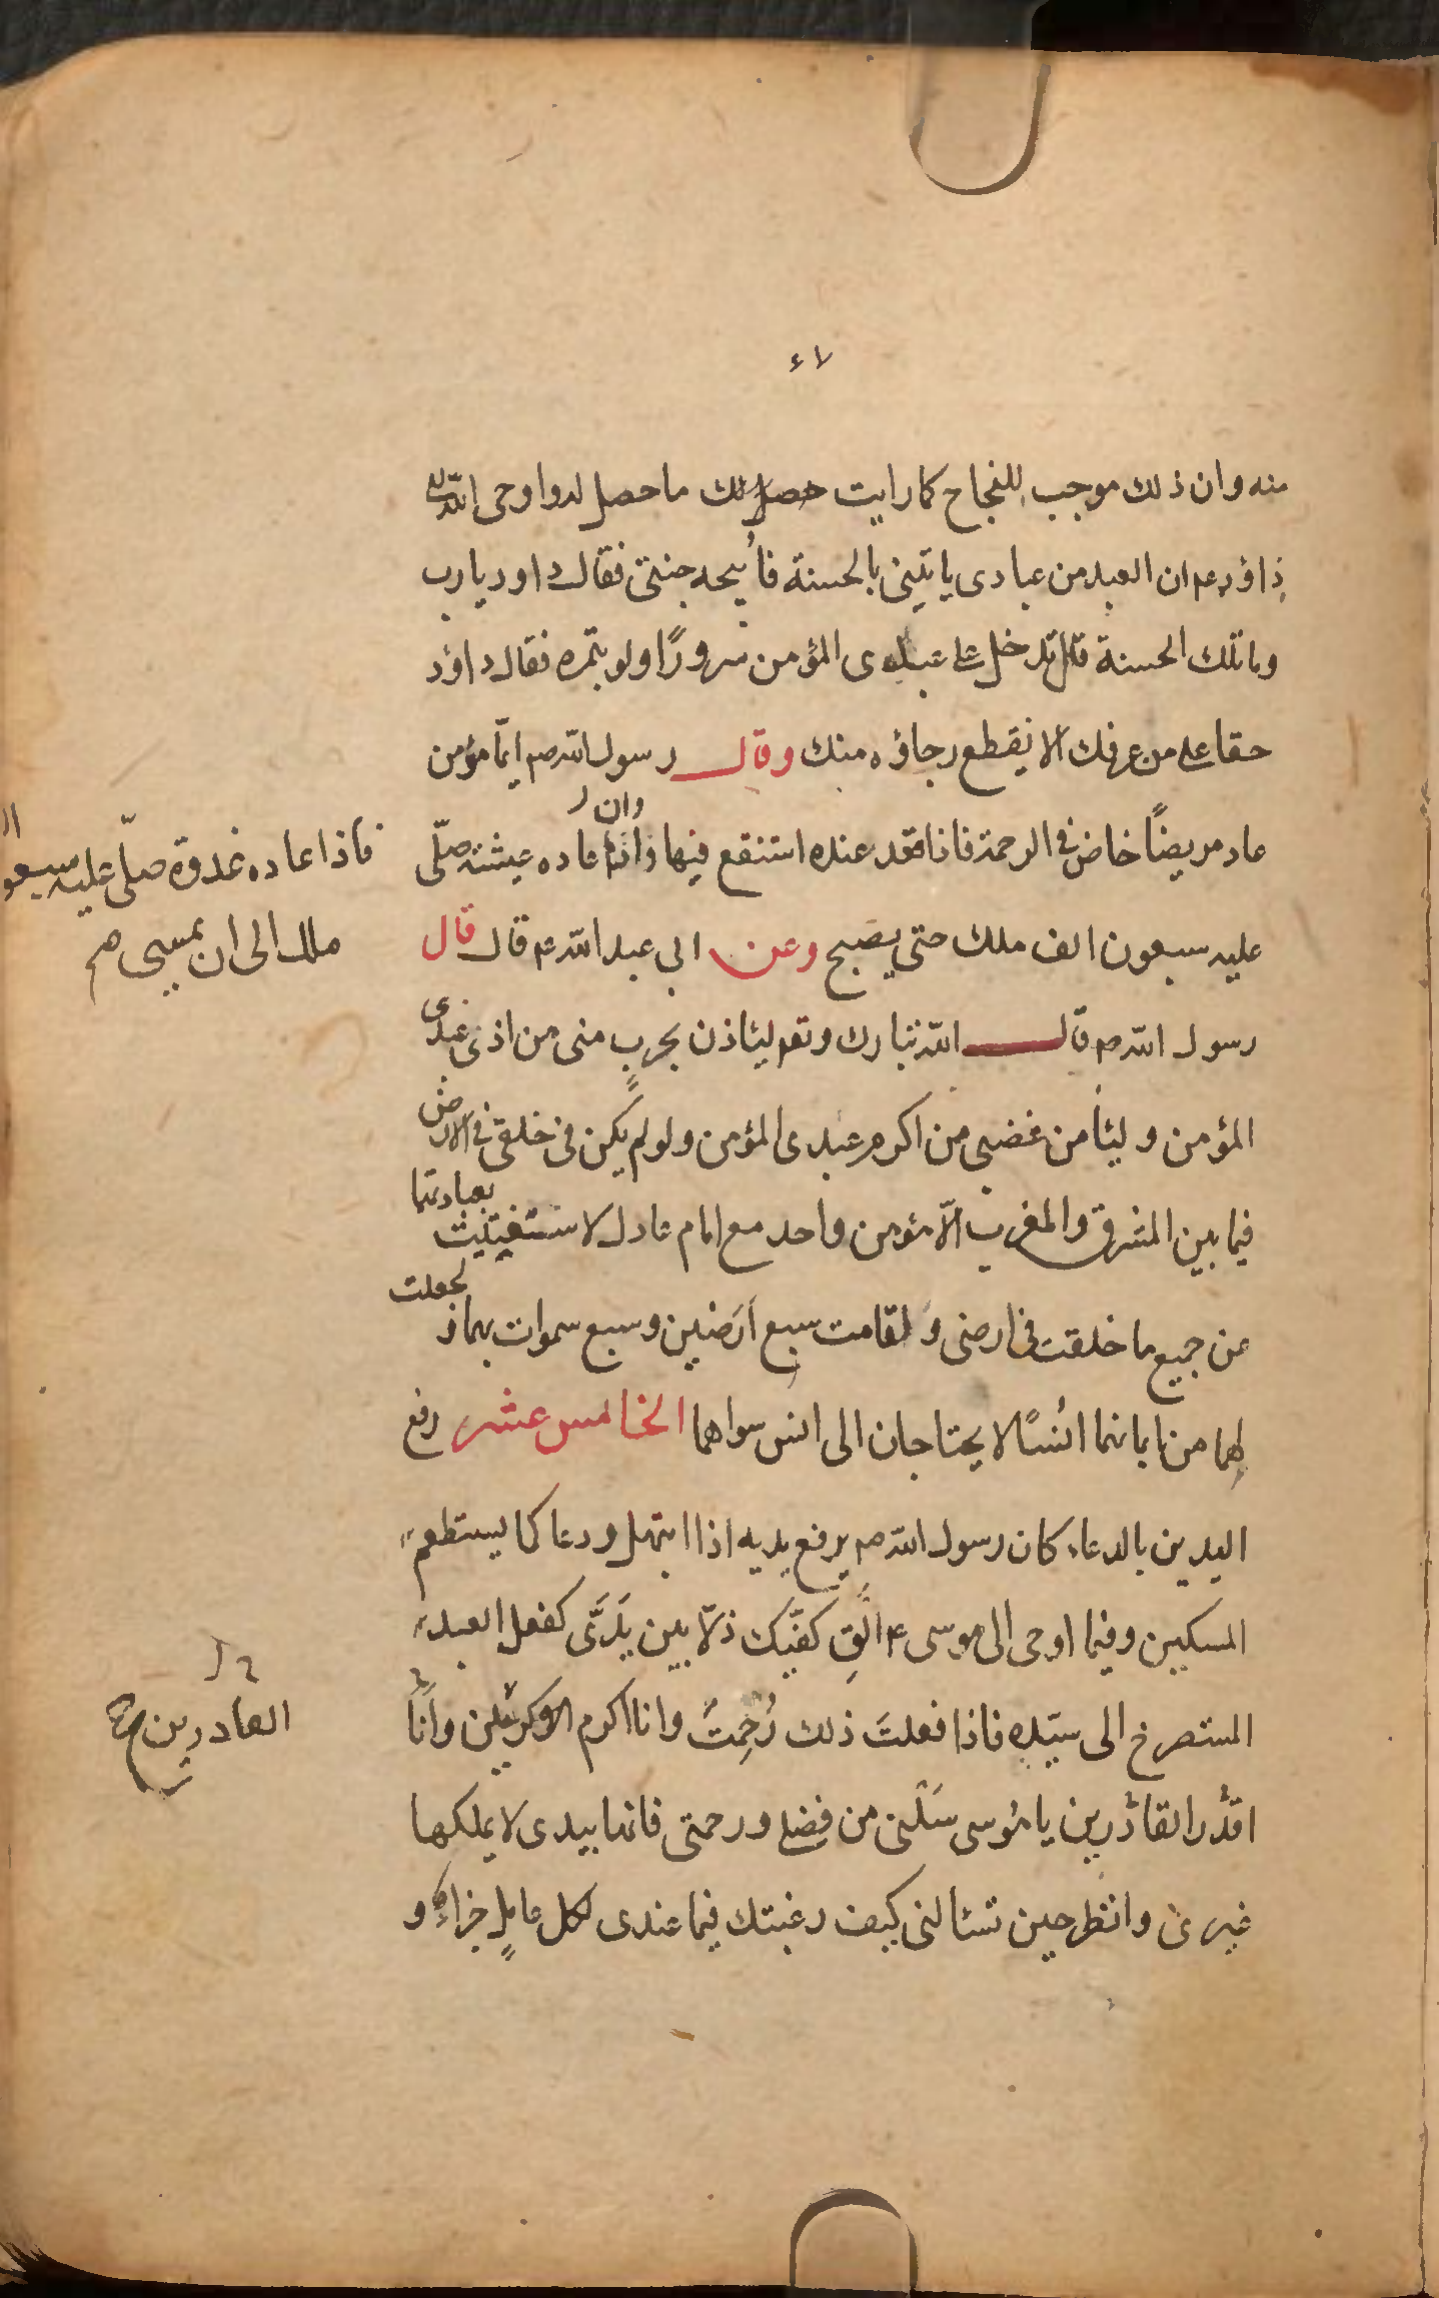 منه وان ذلك موجب للنجاح كما رايت حصل لك ما حصل له واوحى الله الى
داؤد عم ان العبد من عبادى ياتينى بالحسنة فأبيحه جنتى فقال داود يا رب
وما تلك الحسنة قال تدخل على عبدى المؤمن سرورًا ولو بتمره فقال داؤد
حقا على من عرفك الا يقطع رجاؤه منك وقال رسول الله ص ايّما مؤمن
وان
عاد مريضًا خاض فى الرحمة فاذا قعد عنده استنقع فيها عاده عيشته صلّى
فاذا عاده غدوة صلّى عليه سبعو
عليه سبعون الف ملك حتى يصبح وعن ابى عبد الله ع قال قال
ملك الى ان يمسى صح
رسول الله ص قال الله تبارك وتعم ليئاذن بحربٍ منى من اذى عبدى
المؤمن وليئامن غضبى من اكرم عبدى المؤمن ولو لم يكن فى خلقى فى الارض
فيما بين المشرق والمغرب الّا مؤمن واحد مع امام عادل لاستغنيت بعبادتهما
عن جميع ما خلقت فى ارضى ولقامت سبع اَرَضين وسبع سموات بهما ولجعلت
لهما من ايمانهما اُنسًا لا يحتاجان الى انس سواهما الخامس عشر رفع
اليدين بالدعاء كان رسول الله ص يرفع يديه اذا ابتهل ودعا كما يستطعم
المسكين وفيما اوحى الى موسى ع اَلْقِ كفّيك ذلّا بين يَدَىَّ كفعل العبد
المستصرخ الى سيّده فاذا فعلتَ ذلك رُحِمْتَ وانا اكرم الاكرمين وانا
القادرين
اقدر القادرين يا مُوسى سَلْنى من فضلى ورحمتى فانها بيدى لا يملكها
غيرى وانظر حين تسئالنى كيف رغبتك فيما عندى لكل عاملٍ جزاء و